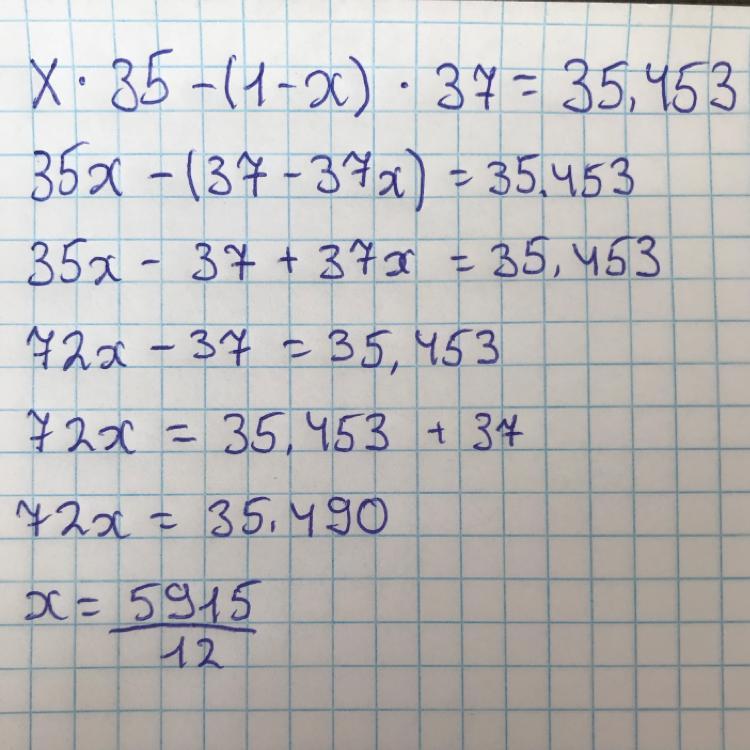 X · 35 - (1 - x) · 37 = 35,453
35x - (37 - 37x) = 35.453
35x - 37 + 37x = 35,453
72x - 37 = 35,453
72x = 35,453 + 37
72x = 35.490
x = 5915/12